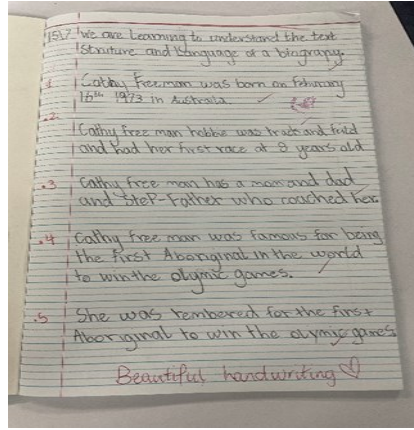 15L7 we are Learning to understand the text
Struture and Language of a biograpy.
.1 Cathy Freeman was born on Februrary
16th 1973 in Australa.
.2
Cathy free man hobbie was track and feild
and had her first race at 8 years old
.3 Cathy free man has a mom and dad
and SteP-Father who coached her.
.4 Cathy free man was famous for being
the first Aboriginal in the world
to win the olymic games.
.5 She was rembered for the first
Aboriginal to win the olymic games.
Beautiful handwriting